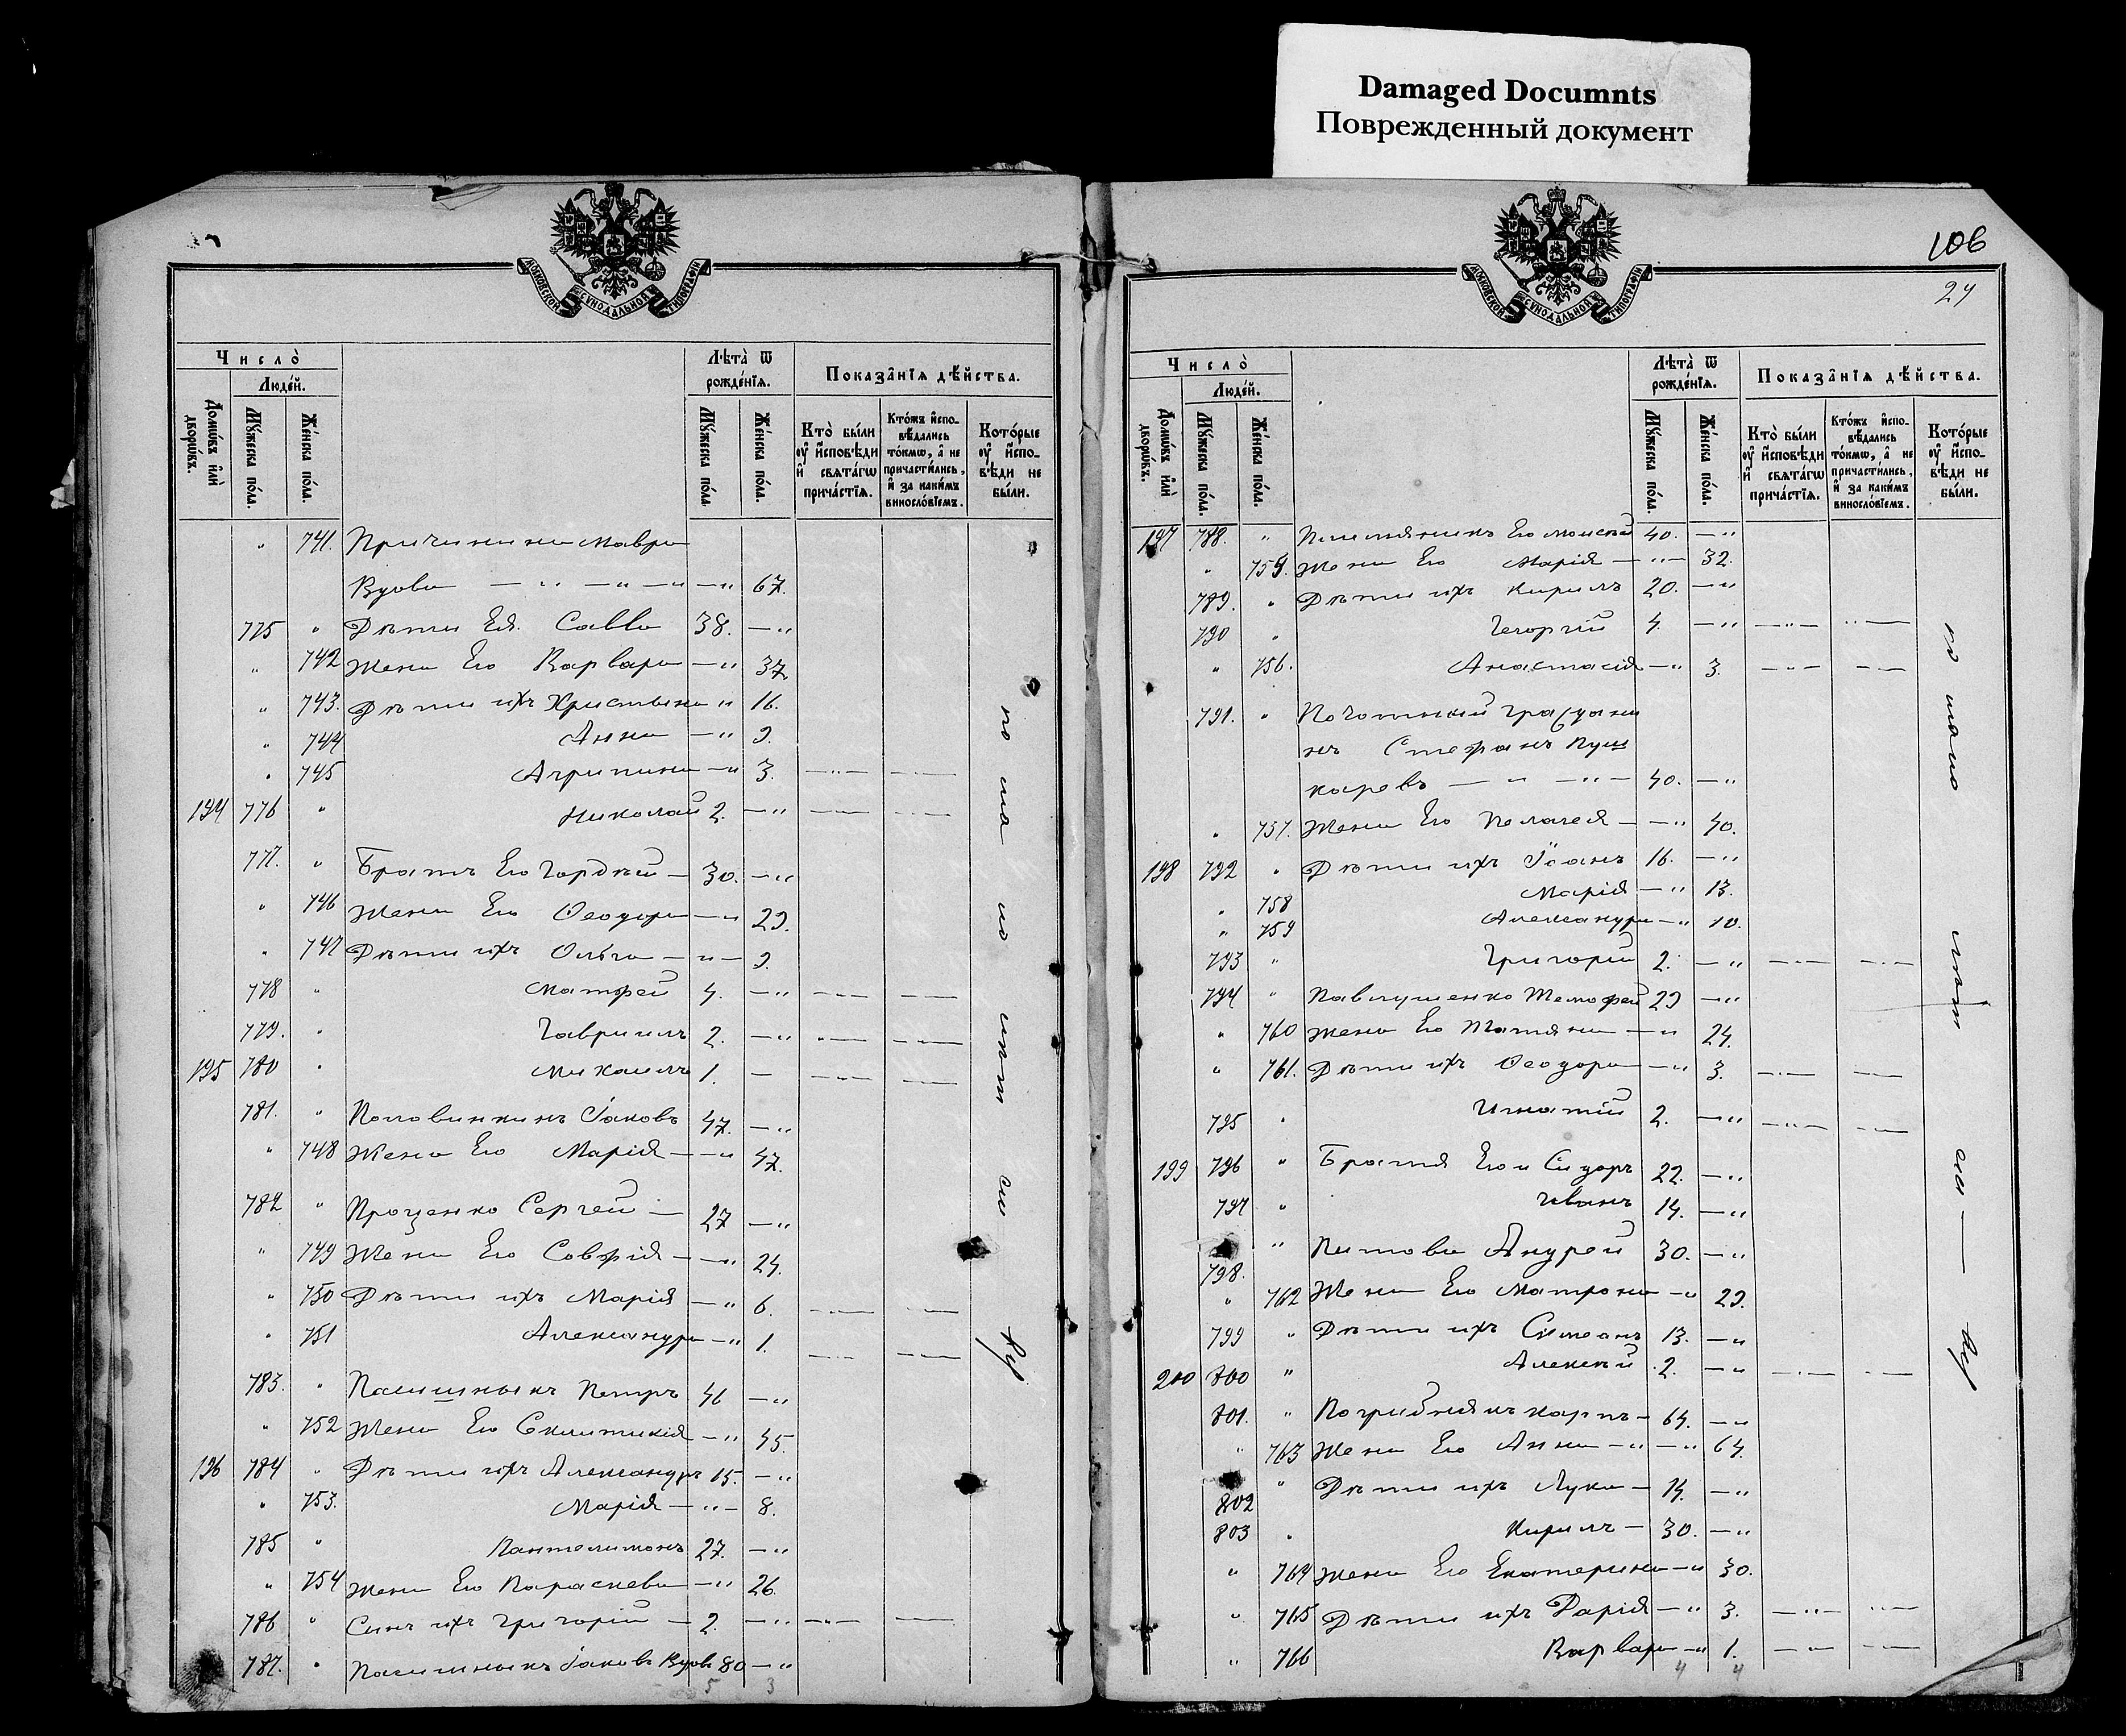 Damaged Documnts
Поврежденный документ
МОСКОВСКОЙ СУНОДАЛЬНОЙ ТИПОГРАФІИ
Число̀
Люде́й.
Домѡ́въ и҆лѝ дворѡ́въ.
Мꙋ́жеска по́ла.
Же́нска по́ла.
Лѣ́та ѿ рожде́нїѧ.
Мꙋ́жеска по́ла.
Же́нска по́ла.
Показа̑нїѧ дѣ́йства.
Кто̀ бы́ли ᲂу҆ и҆́сповѣди и҆ свѧта́гѡ прича́стїѧ.
Кто́жъ и҆сповѣ́дались то́кмѡ, а҆ не причасти́лись, и҆ за каки́мъ винословїемъ.
Кото́рые ᲂу҆ и҆́сповѣди не бы́ли.
" 741. Мавра
Вдова — " — " — " — " 67.
775 " Дѣти Ея Савва 38. — "
" 742 Жена Его Варвара — " 37
" 743. Дѣти ихъ Христина " 16.
" 744 Анна — " 9.
" 745 Агрипина — " 3. — " — — " —
194 776 " Николай 2. — " — " — — " —
777. " Братъ Его Гордѣй — 30. — "
" 746 Жена Его Ѳеодора — " 29.
" 747 Дѣти ихъ Ольга — " — 9.
778 " Матфей 4. — " — " — — " —
779. " Гавріилъ 2. — " — " — — " —
195 780 " Михаилъ 1. — — " — — " —
781. " Половинкинъ Іаковъ 47. — "
" 748 Жена Его Марія — — " 47.
782 " Проценко Сергей — 27 — "
" 749 Жена Его Софія — — " 24.
" 750 Дѣти ихъ Марія — " 6. — " — — " —
" 751 Александра — " 1. — " — — " —
783. " Петръ 46 — "
" 752 Жена Его — " 45.
196 784 " Дѣти ихъ Александръ 15. — "
" 753. Марія — " — 8.
785 " Пантелимонъ 27. — "
" 754 Жена Его Параскева — " 26.
786 " Сынъ ихъ Григорій — 2. — " — " — — " —
787. " Іаковъ Вдовъ 80 — "
5 3
106
24
МОСКОВСКОЙ СУНОДАЛЬНОЙ ТИПОГРАФІИ
Число̀
Люде́й.
Домѡ́въ и҆лѝ дворѡ́въ.
Мꙋ́жеска по́ла.
Же́нска по́ла.
Лѣ́та ѿ рожде́нїѧ.
Мꙋ́жеска по́ла.
Же́нска по́ла.
Показа̑нїѧ дѣ́йства.
Кто̀ бы́ли ᲂу҆ и҆́сповѣди и҆ свѧта́гѡ прича́стїѧ.
Кто́жъ и҆сповѣ́дались то́кмѡ, а҆ не причасти́лись, и҆ за каки́мъ винословїемъ.
Кото́рые ᲂу҆ и҆́сповѣди не бы́ли.
197 788. " Племянникъ Его Моисей 40. — "
" 755. Жена Его Марія — " — 32.
789. " Дѣти ихъ Кирилъ 20. — "
790 " Георгій 4. — " — " — " —
" 756. Анастасія — " 3. — " — — " —
791. " Почотный граждани
нъ Стефанъ Пуш
каревъ — " — " — 40. — "
" 757. Жена Его Пелагея — — " 40.
198 792 " Дѣти ихъ Іоанъ 16. — "
" 758 Марія — " 13.
" 759 Александра — " 10.
793 " Григорій 2. — " — " — — " —
794 " Павлушенко Темофей 29 — "
" 760 Жена Его Татіяна — " 24.
" 761. Дѣти ихъ Ѳеодора — " 3. — " — — " —
795 " Игнатій 2. — " — " — — " —
199 796 " Братія Его Сидоръ 22. — "
797 " Иванъ 14. — "
798. " Андрей 30. — "
" 762 Жена Его Матрона — " 29.
799 " Дѣти ихъ Симеонъ 13. — "
200 800 " Алексѣй 2. — " — " — — " —
801. " Карпъ — 64. — "
" 763 Жена Его Анна — " — " 64.
802 " Дѣти ихъ Лука — 14. — "
803 " Кирилъ — 30. — "
" 764 Жена Его Екатерина — " 30.
" 765 Дѣти ихъ Дарія — " 3. — " — — " —
" 766 Варвара — " 1. — " — — " —
4 4